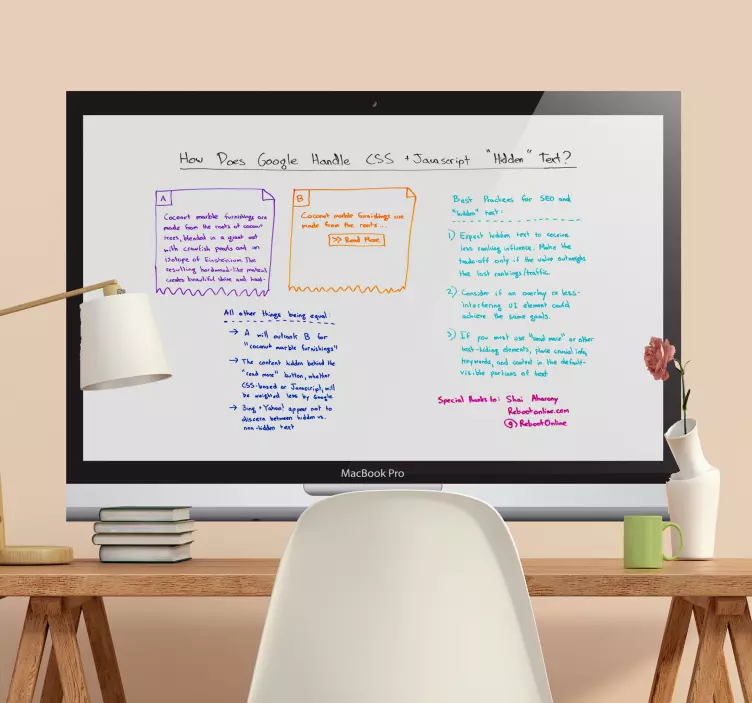 How Does Google Handle CSS + Javascript "Hidden" Text?
A
Coconut marble furnishings are
made from the roots of coconut
trees, blended in a giant vat
with crawfish pearls and an
isotope of Einsteinium. The
resulting hardwood-like material
creates beautiful shine and hard-
B
Coconut marble furnishings are
made from the roots...
>> Read More
All other things being equal:
→ A will outrank B for
"coconut marble furnishings"
→ The content hidden behind the
"read more" button, whether
CSS-based or Javascript, will
be weighted less by Google
→ Bing + Yahoo! appear not to
discern between hidden vs.
non-hidden text
Best Practices for SEO and
"hidden" text:
1) Expect hidden text to receive
less ranking influence. Make the
trade-off only if the value outweighs
the lost rankings/traffic.
2) Consider if an overlay or less-
interfering UI element could
achieve the same goals.
3) If you must use "read more" or other
text-hiding elements, place crucial info,
keywords, and content in the default-
visible portions of text
Special thanks to: Shai Aharony
Rebootonline.com
@RebootOnline
MacBook Pro